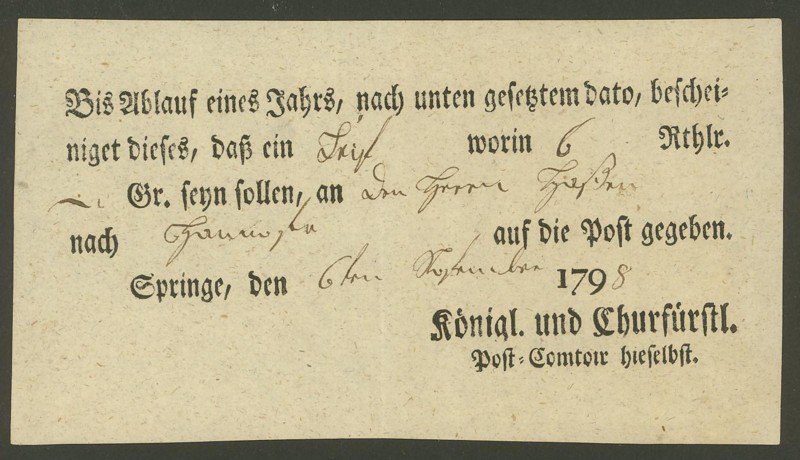 Bis Ablauf eines Jahrs, nach unten gesetztem dato, beschei-
niget dieses, daß ein Brief worin 6 Rthlr.
Gr. seyn sollen, an den Herrn
nach Hannover auf die Post gegeben.
Springe, den 6ten November 1798
Königl. und Churfürstl.
Post-Comtoir hieselbst.